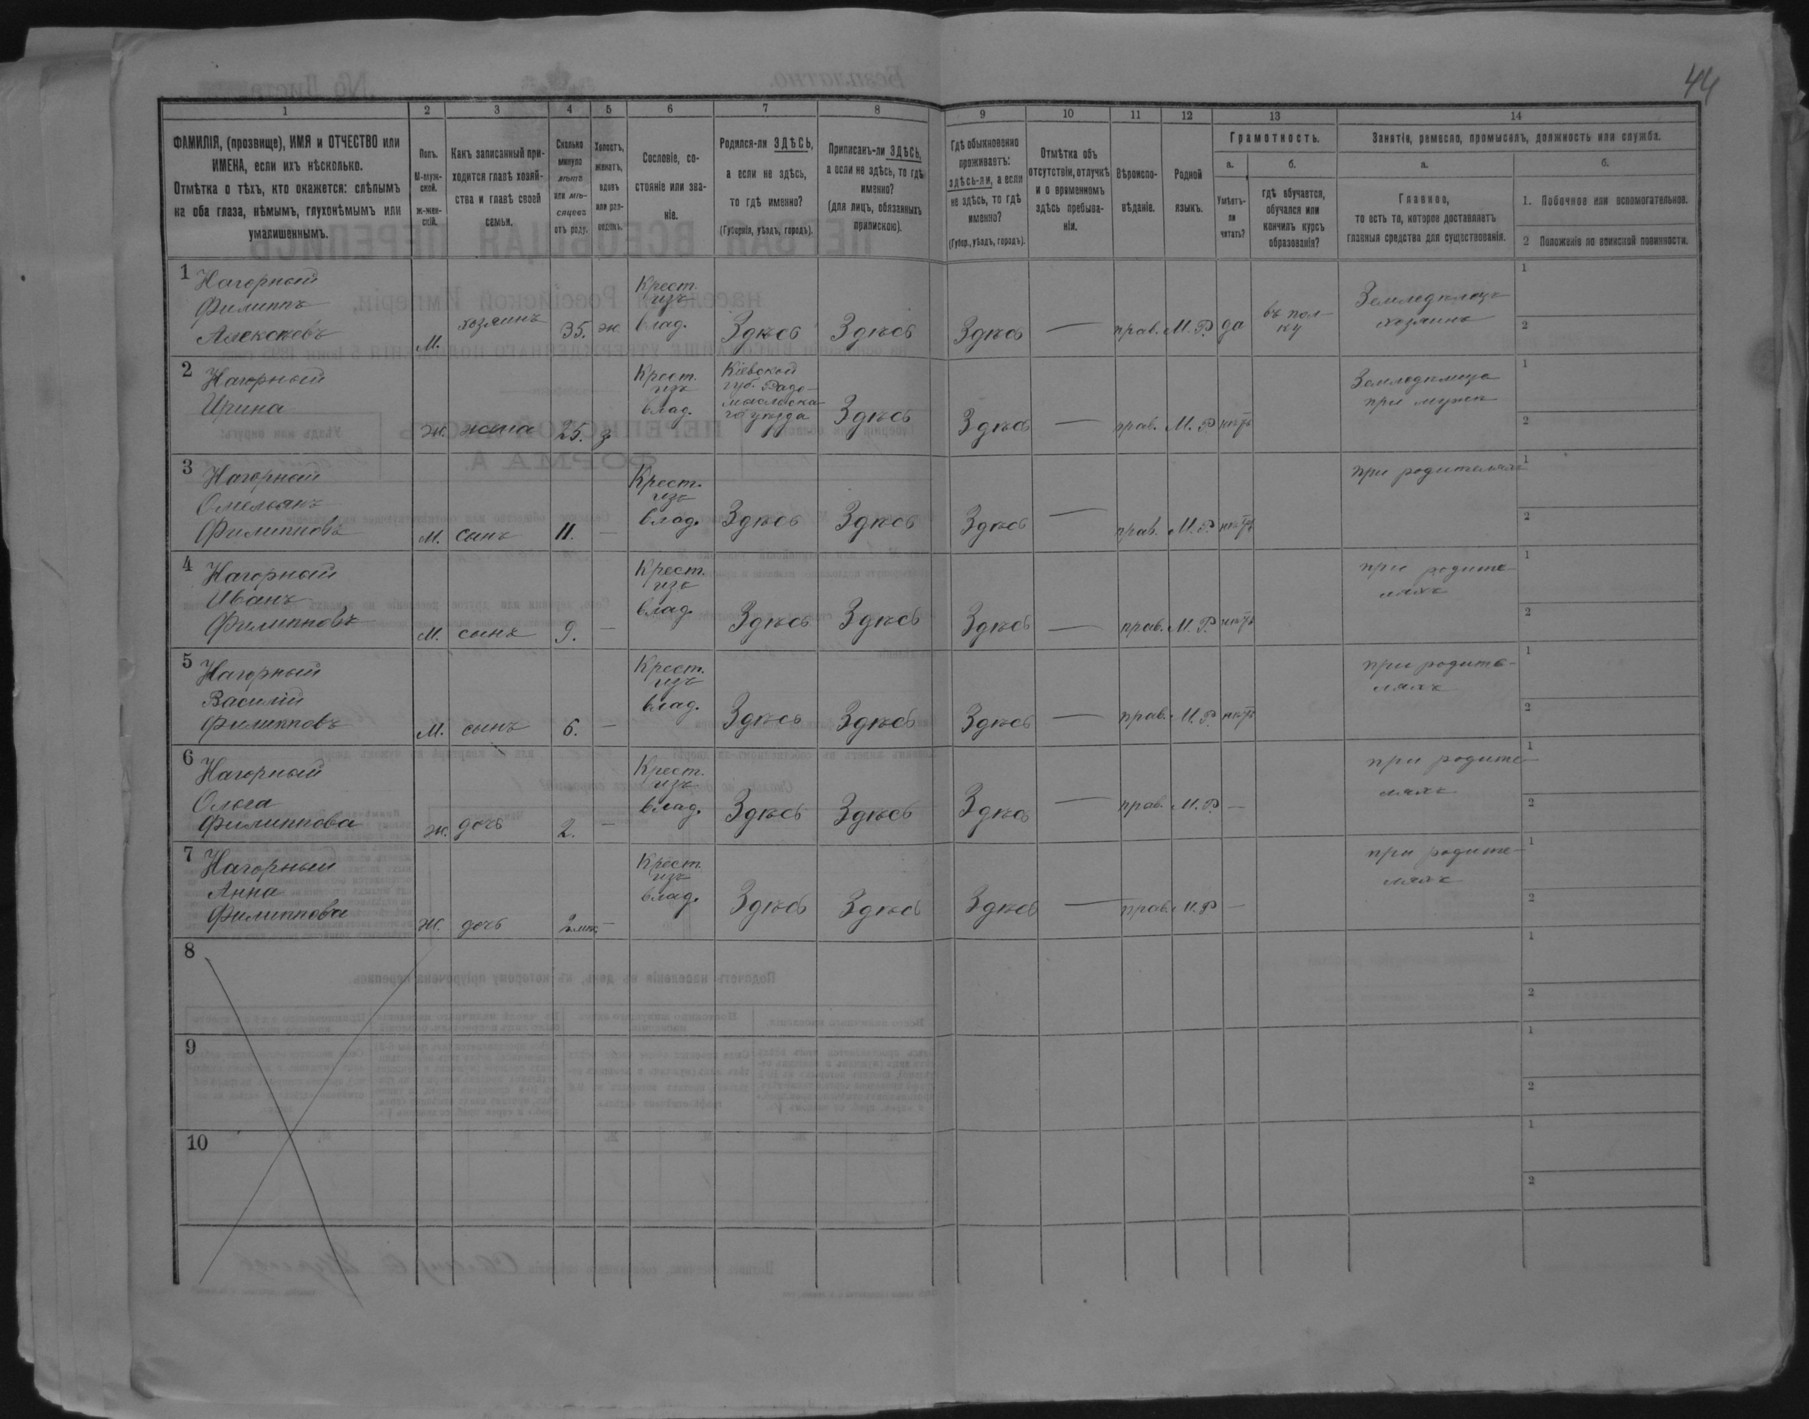 44
1 2 3 4 5 6 7 8 9 10 11 12 13 14
ФАМИЛІЯ, (прозвище), ИМЯ и ОТЧЕСТВО или
ИМЕНА, если ихъ нѣсколько.
Отмѣтка о тѣхъ, кто окажется: слѣпымъ
на оба глаза, нѣмымъ, глухонѣмымъ или
умалишеннымъ.
Полъ.
М-муж-
ской.
ж-жен-
скій.
Какъ записанный при-
ходится главѣ хозяй-
ства и главѣ своей
семьи.
Сколько
минуло
лѣтъ
или мѣ-
сяцевъ
отъ роду.
Холостъ,
женатъ,
вдовъ
или раз-
веденъ.
Сословіе, со-
стояніе или зва-
ніе.
Родился-ли ЗДѢСЬ,
а если не здѣсь,
то гдѣ именно?
(Губернія, уѣздъ, городъ).
Приписанъ-ли ЗДѢСЬ,
а если не здѣсь, то гдѣ
именно?
(для лицъ, обязанныхъ
припискою).
Гдѣ обыкновенно
проживаетъ:
здѣсь-ли, а если
не здѣсь, то гдѣ
именно?
(Губер., уѣздъ, городъ).
Отмѣтка объ
отсутствіи, отлучкѣ
и о временномъ
здѣсь пребыва-
ніи.
Вѣроиспо-
вѣданіе.
Родной
языкъ.
Грамотность.
а.
Умѣетъ-
ли
читать?
б.
гдѣ обучается,
обучался или
кончилъ курсъ
образованія?
Занятіе, ремесло, промыселъ, должность или служба.
а.
Главное,
то есть то, которое доставляетъ
главныя средства для существованія.
б.
1. Побочное или вспомогательное.
2 Положеніе по воинской повинности.
1 Нагорный
Филиппъ
Алексѣевъ
М. хозяинъ 35. ж
Крест.
изъ
влад.
Здѣсь Здѣсь Здѣсь — прав. М. Р. да
въ пол-
ку
Земледѣлецъ
хозяинъ
1
2
2 Нагорный
Ирина
Ж. жена 25. з
Крест.
изъ
влад.
Кіевской
губ. Радо-
мысльска-
го уѣзда
Здѣсь Здѣсь — прав. М. Р. нѣтъ
Земледѣлица
при мужѣ
1
2
3 Нагорный
Омельянъ
Филипповъ
М. сынъ 11. —
Крест.
изъ
влад.
Здѣсь Здѣсь Здѣсь — прав. М. Р. нѣтъ
при родителяхъ
1
2
4 Нагорный
Иванъ
Филипповъ
М. сынъ 9. —
Крест.
изъ
влад.
Здѣсь Здѣсь Здѣсь — прав. М. Р. нѣтъ
при родите
ляхъ
1
2
5 Нагорный
Василій
Филипповъ
М. сынъ 6. —
Крест.
изъ
влад.
Здѣсь Здѣсь Здѣсь — прав. М. Р. нѣтъ
при родите-
ляхъ
1
2
6 Нагорный
Ольга
Филиппова
Ж. дочь 2. —
Крест.
изъ
влад.
Здѣсь Здѣсь Здѣсь — прав. М. Р. —
при родите-
ляхъ
1
2
7 Нагорный
Анна
Филиппова
Ж. дочь —
Крест.
изъ
влад.
Здѣсь Здѣсь Здѣсь — прав. М. Р. —
при родите-
ляхъ
1
2
8
1
2
9
1
2
10
1
2